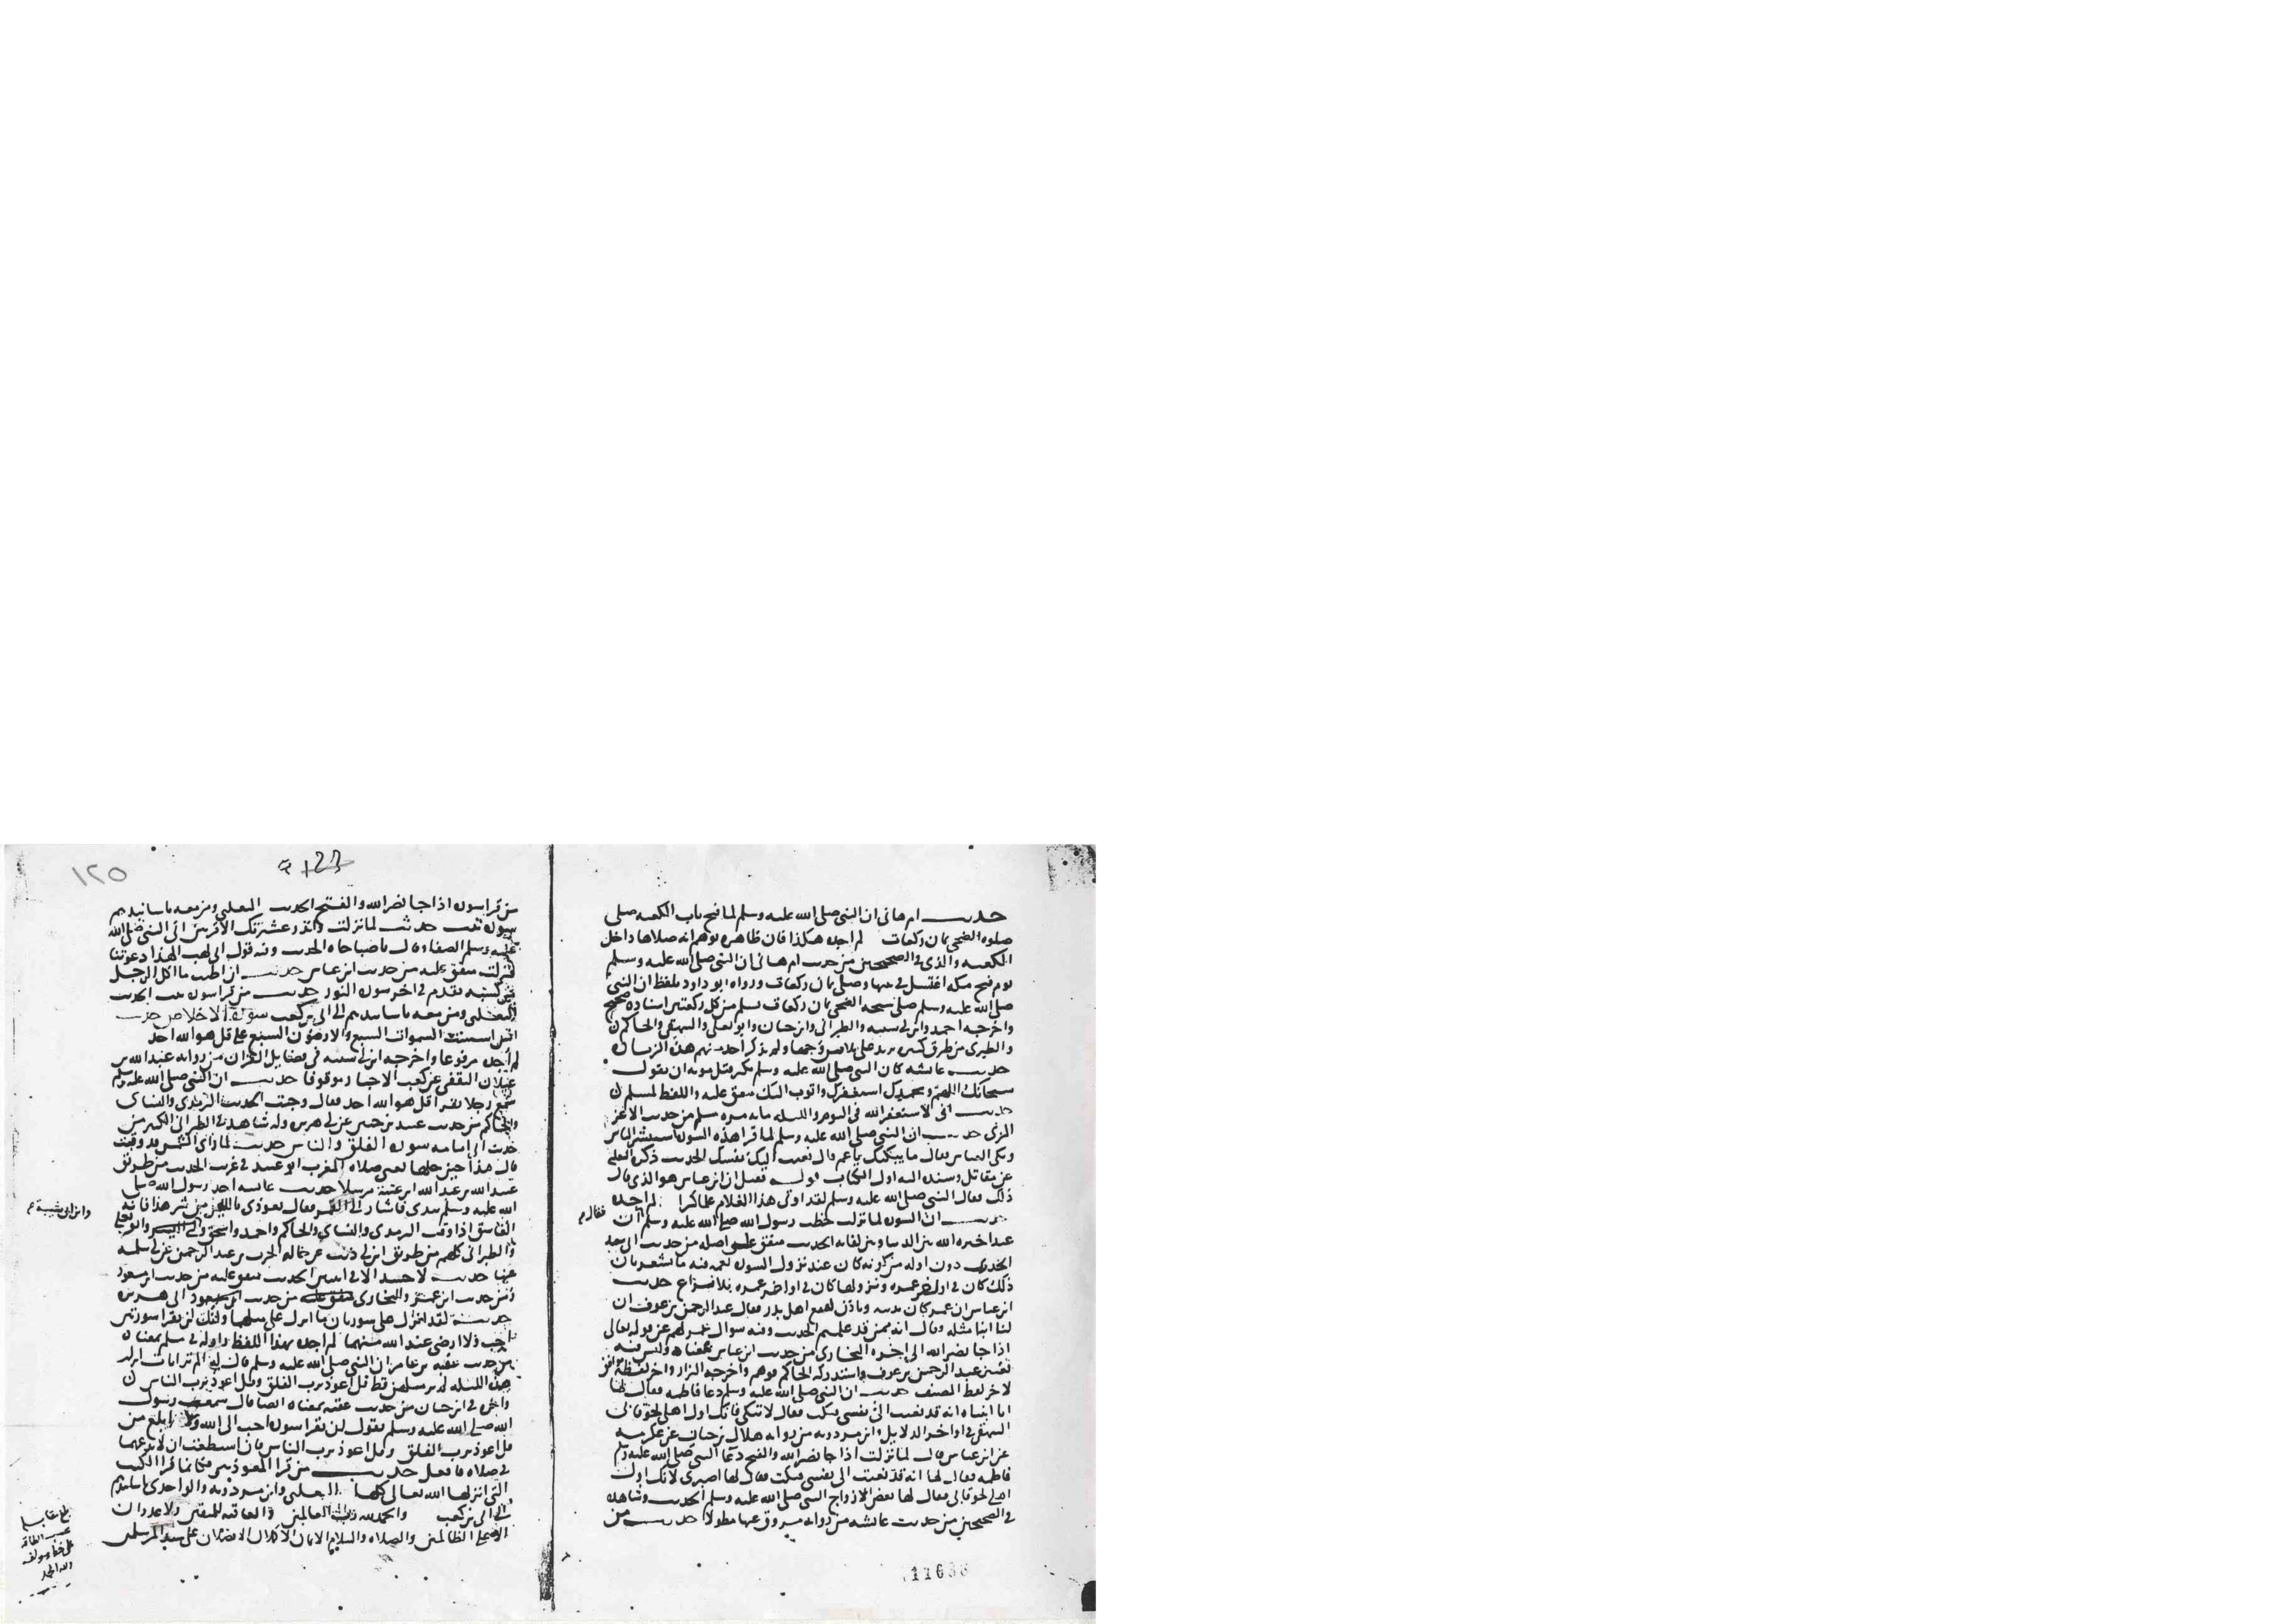 حديث ام هانى ان النبى صلى الله عليه وسلم لما فتح باب الكعبه صلى
صلوه الضحى ثمان ركعات لم اجده هكذا فان ظاهره يوهم انه صلاها داخل
الكعبه والذى فى الصحيحين من حديث ام هانى ان النبى صلى الله عليه وسلم
يوم فتح مكه اغتسل فى بيتها وصلى ثمان ركعات ورواه ابو داود بلفظ ان النبى
صلى الله عليه وسلم صلى سبحه الضحى ثمان ركعات يسلم من كل ركعتين اسناده صحيح
واخرجه احمد وابن ابى شيبه والطبرانى وابن حبان وابو يعلى والبيهقى والحاكم
والطبرى من طرق كثيره ولم يذكر احد منهم هذه الزياده
حديث عائشه كان النبى صلى الله عليه وسلم يكثر قبل موته ان يقول
سبحانك اللهم وبحمدك استغفرك واتوب اليك متفق عليه واللفظ لمسلم
حديث انى لاستغفر الله فى اليوم والليله مايه مره مسلم من حديث الاغر
المزنى حديث ان النبى صلى الله عليه وسلم لما قرا هذه السوره استبشر الناس
وبكى العباس فقال ما يبكيك يا عم قال نعيت اليك نفسك الحديث ذكره الثعلبى
عن مقاتل وسنده اليه اول الكتاب قوله فقيل ان ابن عباس هو الذى قال
ذلك فقال النبى صلى الله عليه وسلم لقد اوتى هذا الغلام علما كثيرا لم اجده
حديث ان السوره لما نزلت خطب رسول الله صلى الله عليه وسلم فقال ان
عبدا خيره الله بين الدنيا وبين لقايه الحديث متفق على اصله من حديث ابى سعيد
الخدرى دون اوله من كونه كان عند نزول السوره نعم فيه ما يشعر بان
ذلك كان فى اواخر عمره ونزولها كان فى اواخر عمره بلا نزاع حديث
ابن عباس ان عمر كان يدنيه وياذن له مع اهل بدر فقال عبد الرحمن بن عوف ان
لنا ابنا مثله وقال انه ممن قد علمتم الحديث وفيه سوال عمر لهم عن قوله تعالى
اذا جا نصر الله الى اخره البخارى من حديث ابن عباس بمعناه وليس فيه
تعيين عبد الرحمن بن عوف واستدركه الحاكم فوهم واخرجه البزار واخر لفظه موافق
لاخر لفظ المصنف حديث ان النبى صلى الله عليه وسلم دعا فاطمه فقال لها
يا ابنتاه انه قد نعيت الى نفسى فبكت فقال لا تبكى فانك اول اهلى لحوقا بى
البيهقى فى اواخر الدلايل وابن مردويه من روايه هلال بن حبان عن عكرمه
عن ابن عباس قال لما نزلت اذا جا نصر الله والفتح دعا النبى صلى الله عليه وسلم
فاطمه فقال لها انه قد نعيت الى نفسى فبكت فقال لها اصبرى لانك اول
اهلى لحوقا بى فقال لها بعض ازواج النبى صلى الله عليه وسلم الحديث وشاهده
فى الصحيحين من حديث عائشه من روايه مسروق عنها مطولا حديث من
11636
١٢٥
123
من قرا سوره اذا جا نصر الله والفتح الحديث الثعلبى ومن معه باسانيدهم
سوره تبت حديث لما نزلت وانذر عشيرتك الاقربين اتى النبى صلى الله
عليه وسلم الصفا وقال يا صباحاه الحديث وفيه قول ابى لهب الهذا دعوتنا
فنزلت متفق عليه من حديث ابن عباس حديث ان اطيب ما اكل الرجل
من كسبه تقدم فى اخر سوره النور حديث من قرا سوره تبت الحديث
الثعلبى ومن معه باسانيدهم الى ابى بن كعب سوره الاخلاص حديث
اسست السموات السبع والارضون السبع على قل هو الله احد
لم اجده مرفوعا واخرجه ابن ضريس فى فضايل القران من روايه عبد الله بن
غيلان الثقفى عن كعب الاحبار موقوفا حديث ان النبى صلى الله عليه وسلم
سمع رجلا يقرا قل هو الله احد فقال وجبت الحديث الترمذى والنسائى
والحاكم من حديث عبيد بن حنين عن ابى هريره وله شاهد فى الطبرانى الكبير من
حديث ابى امامه سوره الفلق والناس حديث لما راى الشمس قد وقبت
قال هذا حين حلها يعنى صلاه المغرب ابو عبيد فى غريب الحديث من طريق
عبيد الله بن عبد الله ابن عتبه مرسلا حديث عائشه اخذ رسول الله صلى
الله عليه وسلم بيدى فاشار الى القمر فقال تعوذى بالله من شر هذا فانه
الغاسق اذا وقب الترمذى والنسائى والحاكم واحمد واسحق وابو يعلى
والطبرانى كلهم من طريق ابن ابى ذيب عن خاله الحرث بن عبد الرحمن عن ابى سلمه
عنها حديث لا حسد الا فى اثنين الحديث متفق عليه من حديث ابن مسعود
ومن حديث ابن عمر والبخارى من حديث ابى هريره
حديث لقد انزل على سورتان ما انزل على مثلهما وانك لن تقرا سورتين
احب ولا ارضى عند الله منهما لم اجده بهذا اللفظ واوله فى مسلم بمعناه
من حديث عقبه بن عامر ان النبى صلى الله عليه وسلم قال له الم تر ايات انزلت
هذه الليله لم ير مثلهن قط قل اعوذ برب الفلق وقل اعوذ برب الناس
واخره فى ابن حبان من حديث عقبه بمعناه ايضا قال سمعت رسول
الله صلى الله عليه وسلم يقول لن تقرا سوره احب الى الله ولا ابلغ من
قل اعوذ برب الفلق وقل اعوذ برب الناس فان استطعت ان لا تدعهما
فى صلاه فافعل حديث من قرا المعوذتين فكانما قرا الكتب
التى انزلها الله تعالى كلها الثعلبى وابن مردويه والواحدى باسانيدهم
الى ابى بن كعب والحمد لله رب العالمين والعاقبه للمتقين ولا عدوان
الا على الظالمين والصلاه والسلام الاتمان الاكملان الافضلان على سيد المرسلين
وابن ابى شيبة
بلغ مقابله
حسب الطاقه
على خط مولفه
ولله الحمد